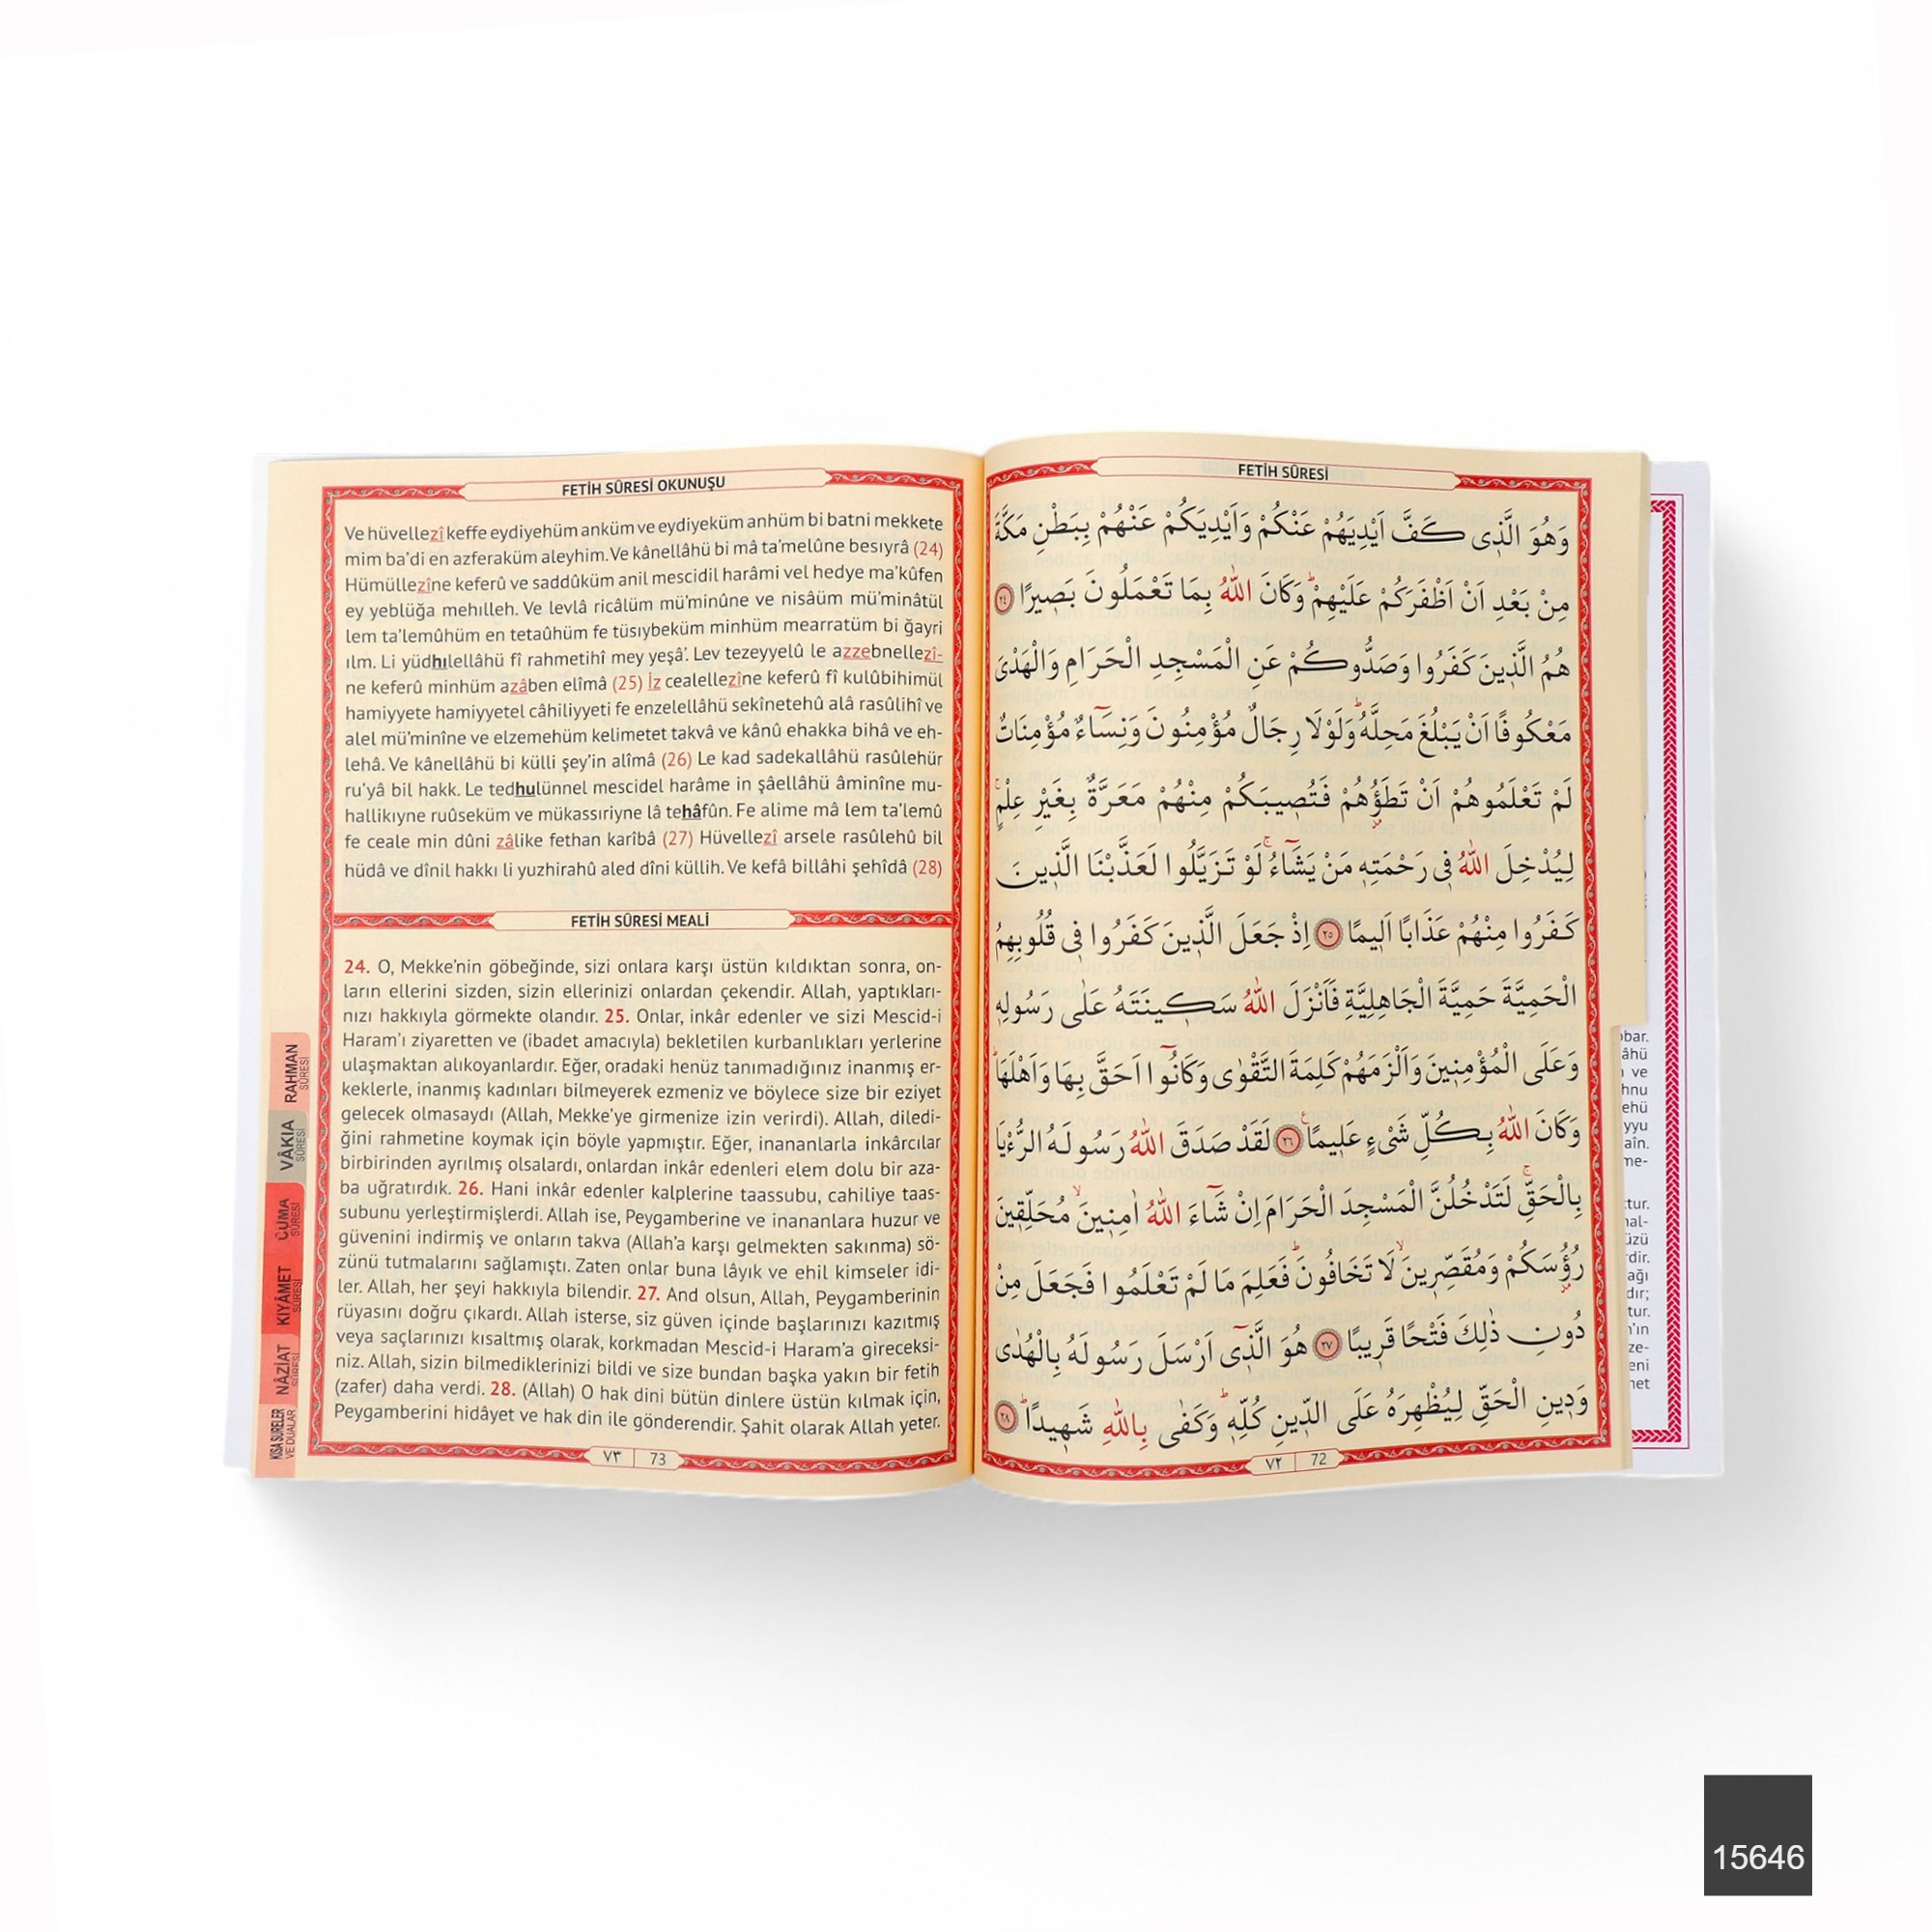 FETİH SÛRESİ OKUNUŞU
Ve hüvellezî keffe eydiyehüm anküm ve eydiyeküm anhüm bi batni mekkete
mim ba'di en azferaküm aleyhim. Ve kânellâhü bi mâ ta'melûne besıyrâ (24)
Hümüllezîne keferû ve saddûküm anil mescidil harâmi vel hedye ma'kûfen
ey yeblüğa mehılleh. Ve levlâ ricâlüm mü'minûne ve nisâüm mü'minâtül
lem ta'lemûhüm en tetaûhüm fe tüsıybeküm minhüm mearratüm bi ğayri
ılm. Li yüdhılellâhü fî rahmetihî mey yeşâ'. Lev tezeyyelû le azzebnellezî-
ne keferû minhüm azâben elîmâ (25) İz cealellezîne keferû fî kulûbihimül
hamiyyete hamiyyetel câhiliyyeti fe enzelellâhü sekînetehû alâ rasûlihî ve
alel mü'minîne ve elzemehüm kelimetet takvâ ve kânû ehakka bihâ ve eh-
lehâ. Ve kânellâhü bi külli şey'in alîmâ (26) Le kad sadekallâhü rasûlehür
ru'yâ bil hakk. Le tedhulünnel mescidel harâme in şâellâhü âminîne mu-
hallikıyne ruûseküm ve mükassıriyne lâ tehâfûn. Fe alime mâ lem ta'lemû
fe ceale min dûni zâlike fethan karîbâ (27) Hüvellezî arsele rasûlehû bil
hüdâ ve dînil hakkı li yuzhirahû aled dîni küllih. Ve kefâ billâhi şehîdâ (28)
FETİH SÛRESİ MEALİ
24. O, Mekke'nin göbeğinde, sizi onlara karşı üstün kıldıktan sonra, on-
ların ellerini sizden, sizin ellerinizi onlardan çekendir. Allah, yaptıkları-
nızı hakkıyla görmekte olandır. 25. Onlar, inkâr edenler ve sizi Mescid-i
Haram'ı ziyaretten ve (ibadet amacıyla) bekletilen kurbanlıkları yerlerine
ulaşmaktan alıkoyanlardır. Eğer, oradaki henüz tanımadığınız inanmış er-
keklerle, inanmış kadınları bilmeyerek ezmeniz ve böylece size bir eziyet
gelecek olmasaydı (Allah, Mekke'ye girmenize izin verirdi). Allah, diledi-
ğini rahmetine koymak için böyle yapmıştır. Eğer, inananlarla inkârcılar
birbirinden ayrılmış olsalardı, onlardan inkâr edenleri elem dolu bir aza-
ba uğratırdık. 26. Hani inkâr edenler kalplerine taassubu, cahiliye taas-
subunu yerleştirmişlerdi. Allah ise, Peygamberine ve inananlara huzur ve
güvenini indirmiş ve onların takva (Allah'a karşı gelmekten sakınma) sö-
zünü tutmalarını sağlamıştı. Zaten onlar buna lâyık ve ehil kimseler idi-
ler. Allah, her şeyi hakkıyla bilendir. 27. And olsun, Allah, Peygamberinin
rüyasını doğru çıkardı. Allah isterse, siz güven içinde başlarınızı kazıtmış
veya saçlarınızı kısaltmış olarak, korkmadan Mescid-i Haram'a gireceksi-
niz. Allah, sizin bilmediklerinizi bildi ve size bundan başka yakın bir fetih
(zafer) daha verdi. 28. (Allah) O hak dini bütün dinlere üstün kılmak için,
Peygamberini hidâyet ve hak din ile gönderendir. Şahit olarak Allah yeter.
٧٣ 73
RAHMAN
SÛRESİ
VÂKIA
SÛRESİ
CUMA
SÛRESİ
KIYÂMET
SÛRESİ
NÂZİAT
SÛRESİ
KISA SURELER
VE DUALAR
FETİH SÛRESİ
وَهُوَ الَّذ۪ي كَفَّ اَيْدِيَهُمْ عَنْكُمْ وَاَيْدِيَكُمْ عَنْهُمْ بِبَطْنِ مَكَّةَ
مِنْ بَعْدِ اَنْ اَظْفَرَكُمْ عَلَيْهِمْۜ وَكَانَ اللّٰهُ بِمَا تَعْمَلُونَ بَص۪يرًا ٢٤
هُمُ الَّذ۪ينَ كَفَرُوا وَصَدُّوكُمْ عَنِ الْمَسْجِدِ الْحَرَامِ وَالْهَدْيَ
مَعْكُوفًا اَنْ يَبْلُغَ مَحِلَّهُۜ وَلَوْلَا رِجَالٌ مُؤْمِنُونَ وَنِسَٓاءٌ مُؤْمِنَاتٌ
لَمْ تَعْلَمُوهُمْ اَنْ تَطَؤُ۫هُمْ فَتُص۪يبَكُمْ مِنْهُمْ مَعَرَّةٌ بِغَيْرِ عِلْمٍۚ
لِيُدْخِلَ اللّٰهُ ف۪ي رَحْمَتِه۪ مَنْ يَشَٓاءُۚ لَوْ تَزَيَّلُوا لَعَذَّبْنَا الَّذ۪ينَ
كَفَرُوا مِنْهُمْ عَذَابًا اَل۪يمًا ٢٥ اِذْ جَعَلَ الَّذ۪ينَ كَفَرُوا ف۪ي قُلُوبِهِمُ
الْحَمِيَّةَ حَمِيَّةَ الْجَاهِلِيَّةِ فَاَنْزَلَ اللّٰهُ سَك۪ينَتَهُ عَلٰى رَسُولِه۪
وَعَلَى الْمُؤْمِن۪ينَ وَاَلْزَمَهُمْ كَلِمَةَ التَّقْوٰى وَكَانُٓوا اَحَقَّ بِهَا وَاَهْلَهَاۜ
وَكَانَ اللّٰهُ بِكُلِّ شَيْءٍ عَل۪يمًا ٢٦ لَقَدْ صَدَقَ اللّٰهُ رَسُولَهُ الرُّءْيَا
بِالْحَقِّۚ لَتَدْخُلُنَّ الْمَسْجِدَ الْحَرَامَ اِنْ شَٓاءَ اللّٰهُ اٰمِن۪ينَۙ مُحَلِّق۪ينَ
رُؤُ۫سَكُمْ وَمُقَصِّر۪ينَۙ لَا تَخَافُونَۜ فَعَلِمَ مَا لَمْ تَعْلَمُوا فَجَعَلَ مِنْ
دُونِ ذٰلِكَ فَتْحًا قَر۪يبًا ٢٧ هُوَ الَّذ۪ٓي اَرْسَلَ رَسُولَهُ بِالْهُدٰى
وَد۪ينِ الْحَقِّ لِيُظْهِرَهُ عَلَى الدّ۪ينِ كُلِّه۪ۜ وَكَفٰى بِاللّٰهِ شَه۪يدًاۜ ٢٨
٧٢ 72
15646